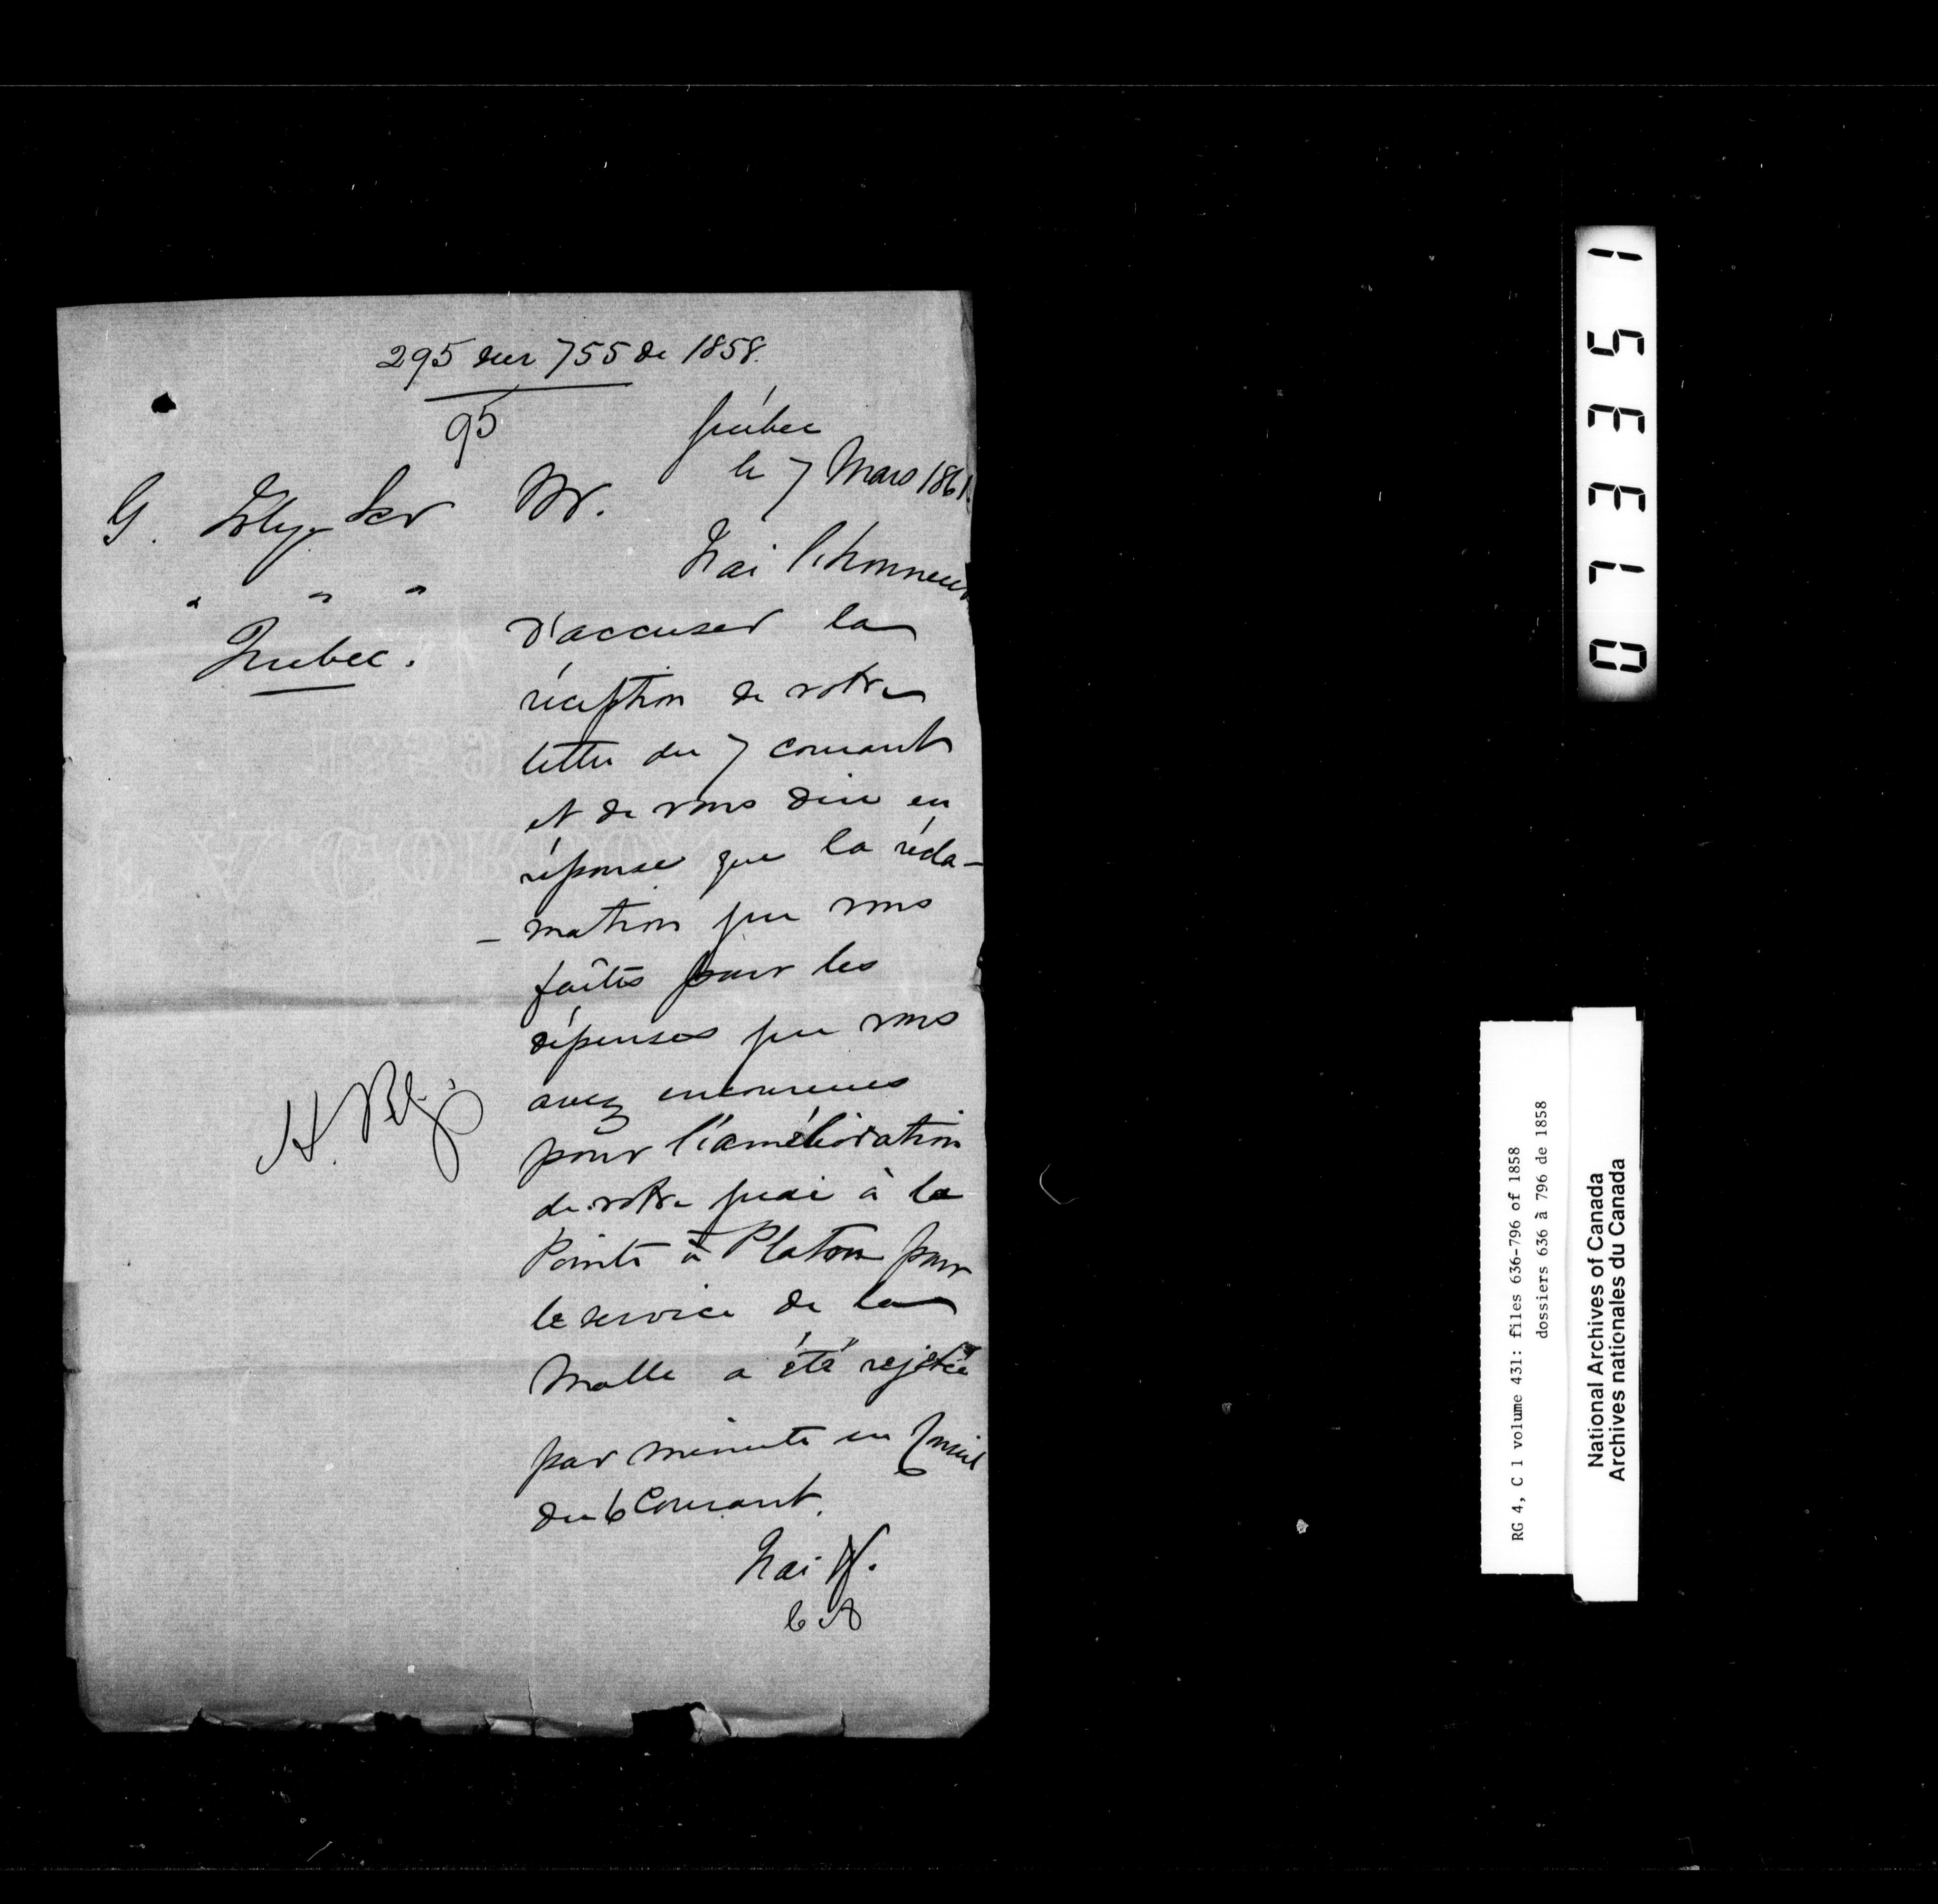 295 sur 755 de 1858.
95
Québec
le 7 Mars 1861.
G. Joly Ecr
" " "
Québec.
Mr.
J'ai l'honneur
d'accuser la
réception de votre
lettre du 7 courant
et de vous dire en
réponse que la récla-
-mation que vous
faîtes pour les
dépenses que vous
avez encourues
pour l'amélioration
de votre quai à la
Pointe à Platon pour
le service de la
Malle a été rejetée
par minute en Conseil
du 6 Courant.
J'ai &.
C A
H.
071335 1
RG 4, C 1 volume 431: files 636-796 of 1858
dossiers 636 à 796 de 1858
National Archives of Canada
Archives nationales du Canada